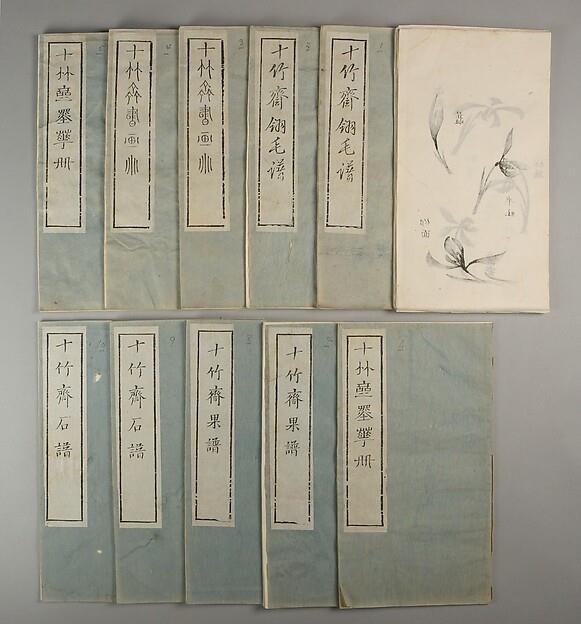 十竹齋翎毛譜
十竹齋翎毛譜
十竹齋書画冊
十竹齋書画冊
十竹齋墨華冊
十竹齋墨華冊
十竹齋果譜
十竹齋果譜
十竹齋石譜
十竹齋石譜